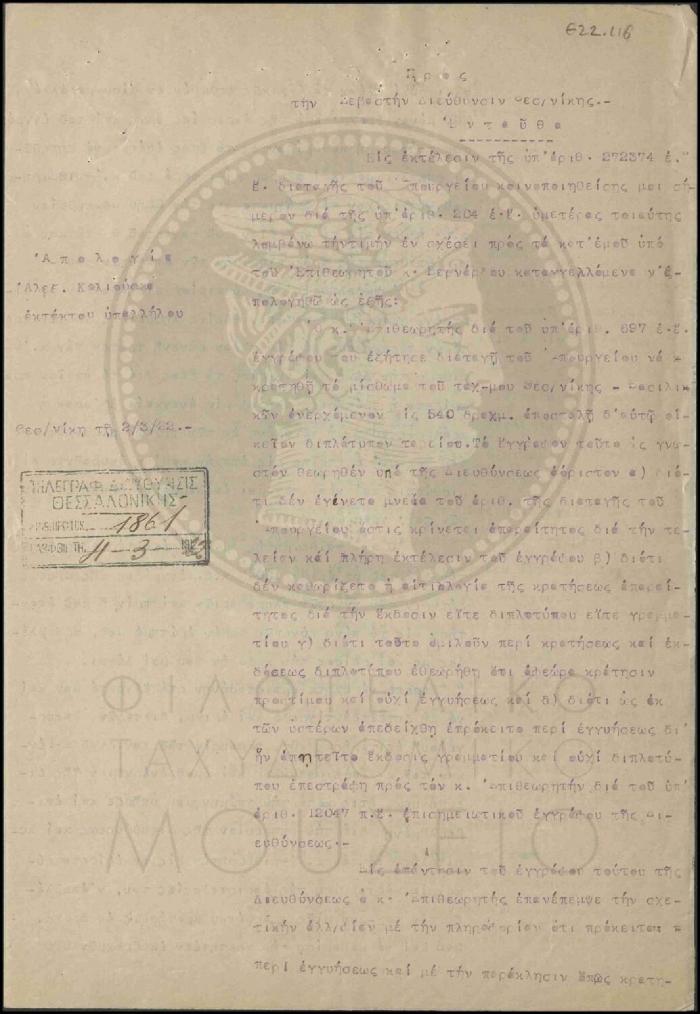 Ε22.116
Πρός
τήν Σεβαστήν Διεύθυνσιν Θεσ/νίκης.-
Ἐνταῦθα
Εἰς ἐκτέλεσιν τῆς ὑπ'ἀριθ. 272374 ἐ.
ἔ. διαταγῆς τοῦ Ὑπουργείου κοινοποιηθείσης μοι σή-
μερον διά τῆς ὑπ'ἀριθ. 204 ἐ.ἔ. ὑμετέρας τοιαύτης
λαμβάνω τήντιμήν ἐν σχέσει πρός τά κατ'ἐμοῦ ὑπό
τοῦ Ἐπιθεωρητοῦ κ. Βερνάρδου καταγγελλόμενα ν'ἀ-
πολογηθῶ ὡς ἑξῆς:
Ἀπολογία
Ἀλεξ. Καλιούσκα
ἐκτάκτου ὑπαλλήλου
Θεσ/νίκη τῇ 2/3/22.-
Ὁ κ. Ἐπιθεωρητής διά τοῦ ὑπ'ἀριθ. 697 ἐ.ἔ.
ἐγγράφου του ἐζήτησε διαταγῇ τοῦ Ὑπουργείου νά
κρατηθῇ τό μίσθωμα τοῦ ταχ-μου Θεσ/νίκης - Βασιλι-
κῶν ἀνερχόμενον εἰς 540 δραχμ. ἀποσταλῇ δ'αὐτῷ οἰ-
κεῖον διπλότυπον ταμείου.Τό ἔγγραφον τοῦτο ὡς γνω-
στόν θεωρηθέν ὑπό τῆς Διευθύνσεως ἀόριστον α) διό-
τι δέν ἐγένετο μνεία τοῦ ἀριθ. τῆς διαταγῆς τοῦ
Ὑπουργείου ὅστις κρίνεται ἀπαραίτητος διά τήν τε-
λείαν καί πλήρη ἐκτέλεσιν τοῦ ἐγγράφου β) διότι
δέν καθωρίζετο ἡ αἰτιολογία τῆς κρατήσεως ἀπαραί-
τητος διά τήν ἔκδοσιν εἴτε διπλοτύπου εἴτε γραμμα-
τίου γ) διότι τοῦτο ὁμιλοῦν περί κρατήσεως καί ἐκ-
δόσεως διπλοτύπου ἐθεωρήθη ὅτι ἀφεώρα κράτησιν
προστίμου καί οὐχί ἐγγυήσεως καί δ) διότι ὡς ἐκ
τῶν ὑστέρων ἀπεδείχθη ἐπρόκειτο περί ἐγγυήσεως δι'
ἥν ἀπητεῖτο ἔκδοσις γραμματίου καί οὐχί διπλοτύ-
που ἐπεστράφη πρός τόν κ. Ἐπιθεωρητήν διά τοῦ ὑπ'
ἀριθ. 12047 π.ἔ. ἐπισημειωτικοῦ ἐγγράφου τῆς Δι-
ευθύνσεως.-
Εἰς ἀπάντησιν τοῦ ἐγγράφου τούτου τῆς
Διευθύνσεως ὁ κ. Ἐπιθεωρητής ἐπανέπεμψε τήν σχε-
τικήν ἀλλ/φίαν μέ τήν πληροφορίαν ὅτι πρόκειται
περί ἐγγυήσεως καί μέ τήν παράκλησιν ὅπως κρατη-
ΤΗΛΕΓΡΑΦ. ΔΙΕΥΘΥΝΣΙΣ
ΘΕΣΣΑΛΟΝΙΚΗΣ
1861
4-3-
ΦΙΛΟΤΕΛΙΚΟ
ΤΑΧΥΔΡΟΜΙΚΟ
ΜΟΥΣΕΙΟ